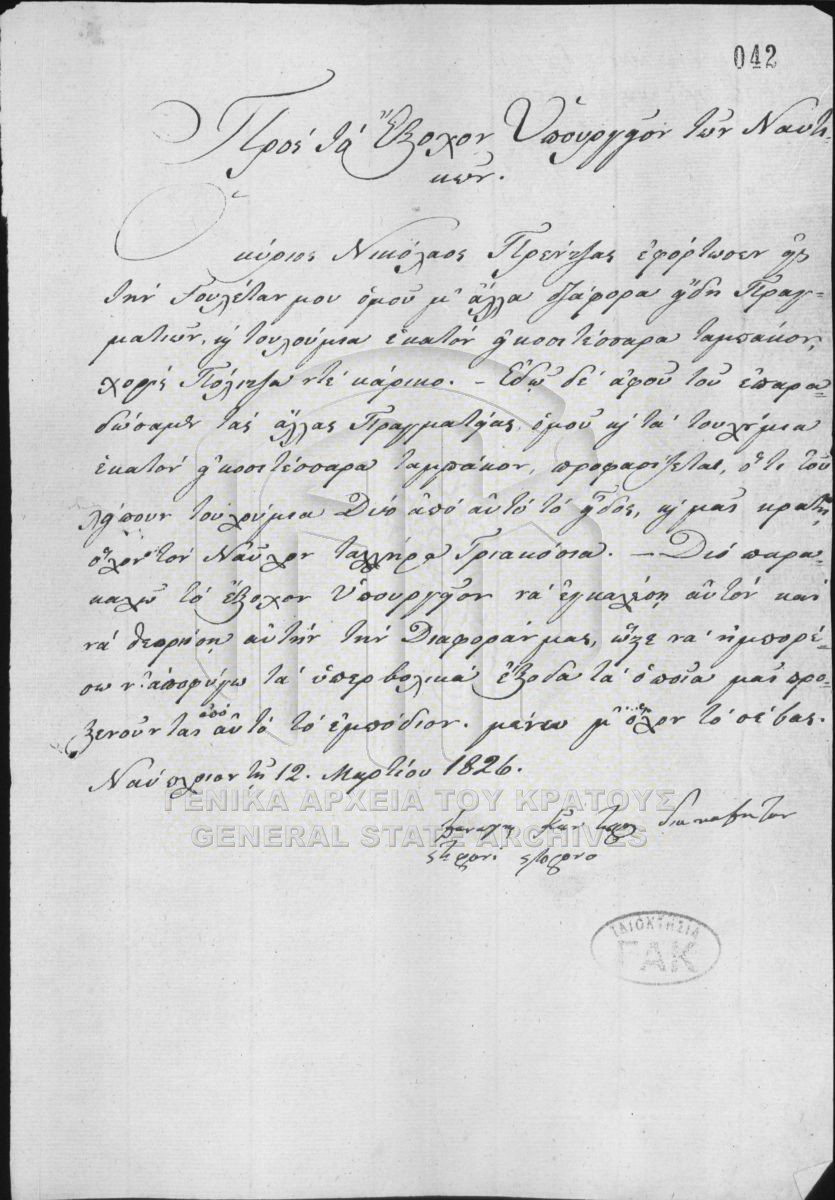 042
Πρός τό Ἔξοχον Ὑπουργεῖον τῶν Ναυτι-
κῶν.
Ὁ κύριος Νικόλαος Πρέντζας ἐφόρτωσεν εἰς
τὴν Γουλέταν μου ὁμοῦ μ' ἄλλα διάφορα εἴδη Πραγ-
ματιῶν, καὶ τουλούμια ἑκατόν εἰκοσιτέσσαρα ταμπάκον,
χορίς Πόλιτζα ντέ κάρικο. – Ἐδῶ δέ ἀφοῦ τοῦ ἐπαρα-
δώσαμεν τάς ἄλλας Πραγματείας, ὁμοῦ καὶ τά τουλούμια
ἑκατόν εἰκοσιτέσσαρα ταμπάκον, προφασίζεται, ὅτι τοῦ
λείπουν τουλούμια Δύο ἀπό αὐτό τό εἶδος, καὶ μᾶς κρατεῖ
ὅλον τόν Ναῦλον ταλλήρα Τριακόσια. – Διό παρα-
καλῶ τό ἔξοχον Ὑπουργεῖον νά ἐγκαλέσῃ αὐτόν καί
νά θεωρήσῃ αὐτήν τήν Διαφοράν μας, ὥστε νά ἠμπορέ-
σω ν' ἀποφύγω τά ὑπερβολικά ἔξοδα τά ὁποῖα μᾶς προ-
ξενοῦνται ἀπό αὐτό τό ἐμπόδιον. μένω μ' ὅλον τό σέβας.
Ναύπλιον τῇ 12. Μαρτίου 1826.
ΓΕΝΙΚΑ ΑΡΧΕΙΑ ΤΟΥ ΚΡΑΤΟΥΣ
GENERAL STATE ARCHIVES
ΙΔΙΟΚΤΗΣΙΑ
ΓΑΚ